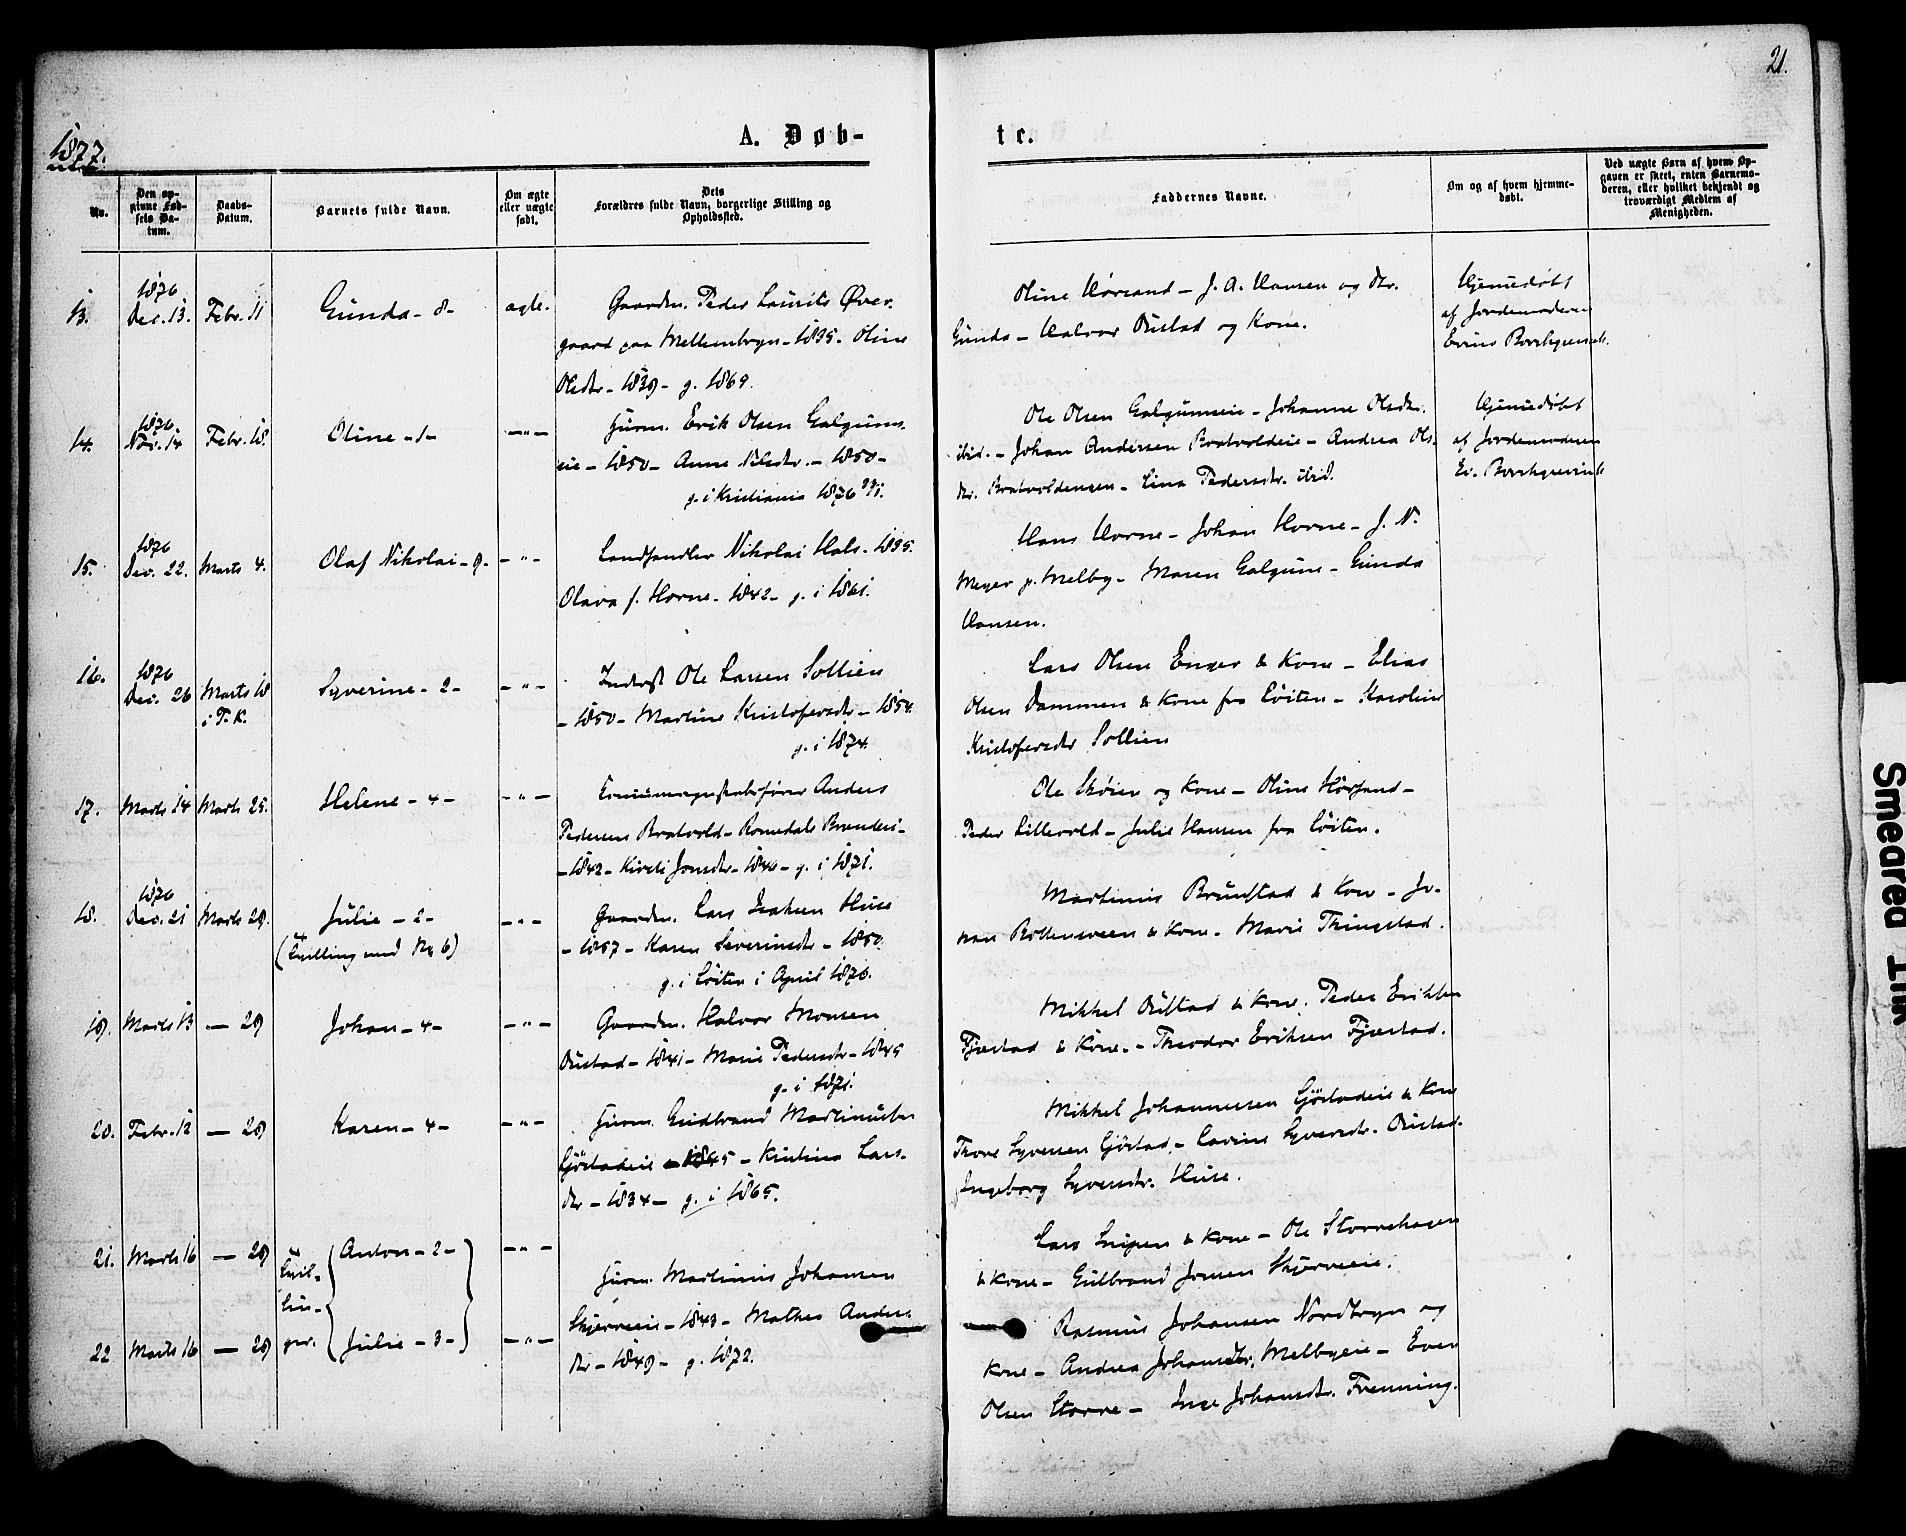 21.
1877.
A. Døb-
te.
No.
Den op-
givne Fød-
sels Da-
tum.
Daabs-
Datum.
Barnets fulde Navn.
Om ægte
eller uægte
født.
Dets
Forældres fulde Navn, borgerlige Stilling og
Opholdssted.
Faddernes Navne.
Om og af hvem hjemme-
døbt.
Ved uægte Barn af hvem Op-
gaven er skeet, enten Barnemo-
deren, eller hvilket bekjendt og
troværdigt Medlem af
Menigheden.
13.
1876
Dec. 13.
Febr. 11
Gunda - 8 -
ægte.
Gaardm. Peder Laurits Øver-
gaard paa Mellembyn - 1835 - Oline
Olsdtr - 1839 - g. 1869.
Oline Hørsand - J. A. Hansen og Dtr.
Gunda - Halvor Oustad og Kone.
Hjemmedøbt
af Jordemoderen
14.
1876
Nov. 14
Febr. 18.
Oline - 1 -
- " -
Husm. Erik Olsen Galgum-
eie - 1850 - Anne Nilsdtr. - 1850 -
g. i Kristiania 1876
Ole Olsen Galgumseie - Johanne Olsdtr.
ibid. - Johan Andersen Bratvoldeie - Andrea Ols-
dtr. Bratvoldengen - Lina Pedersdtr. ibid.
Hjemmedøbt
af Jordemoderen
15.
1876
Dec. 22.
Marts 4.
Olaf Nikolai - 9 -
- " -
Landhandler Nikolai Hals - 1835.
Olava f. Horne - 1842 - g. i 1861.
Hans Horne - Johan Horne - J. N.
Meyer p. Melby - Maren Galgum - Gunda
Hansen.
16.
1876
Dec. 26
Marts 18
i T. K.
Syverine - 2 -
- " -
Inderst Ole Larsen Sollien
- 1850 - Martine Kristofersdtr - 1854.
g. i 1874.
Lars Olsen Enger & Kone - Elias
Olsen Dammen & Kone fra Løiten - Karoline
Kristofersdtr Sollien
17.
Marts 14
Marts 25.
Helene - 4 -
- " -
Anders
Pedersen Bratvold - Romedals Brænderi -
- 1842 - Kirsti Jonsdtr - 1846 - g. i 1871.
Ole Skøien og Kone - Oline Hørsand -
Peder Lillevold - Julie Hansen fra Løiten.
18.
1876
Dec. 21
Marts 29.
Julie - 2 -
(Tvilling med No 6)
- " -
Gaardm. Lars Isaksen Huse
- 1857 - Karen Severinsdtr - 1850
g. i Løiten i April 1876.
Martinus Brunstad & Kone - Jo-
han Rottensveen & Kone - Marie Thingstad.
19.
Marts 13
- 29
Johan - 4 -
- " -
Gaardm. Halvor Monsen
Oustad - 1841 - Marie Pedersdtr - 1845
g. i 1871.
Mikkel Oustad & Kone. Peder Eriksen
Fjæstad & Kone. - Theodor Eriksen Fjæstad.
20.
Febr. 12
- 29
Karen - 4 -
- " -
Husm. Gudbrand Martinusen
Gjörstadeie - 1845 - Kristine Lars-
dtr - 1834 - g. i 1865.
Mikkel Johannessen Gjörstadeie & Kone
Thore Syversen Gjörstad - Lavine Syversdtr. Oustad.
Ingeborg Syversdtr. Huse.
21.
Marts 16
- 29
Tvil-
lin-
ger.
Anton - 2 -
- " -
Husm. Martinus Johansen
Skjerveeie - 1843 - Mathea Anders-
dtr - 1849 - g. 1872.
Lars Snipen & Kone - Ole Storrehagen
& Kone - Gulbrand Jonsen Skjerveeie.
22
Marts 16
- 29
Julie - 3 -
- " -
Rasmus Johansen Nordbryn og
Kone - Andrea Johansdtr, Melbyeie - Even
Olsen Storre - Inge Johansdtr. Frenning.
Smeared Ink